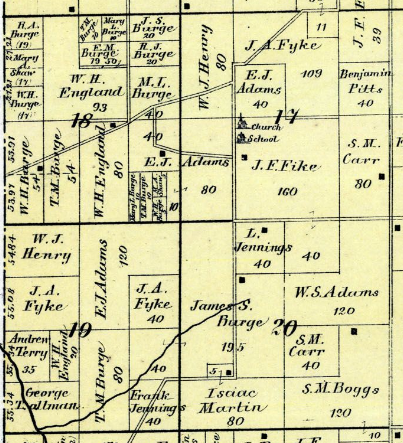 R.A.
Burge
(19)
F.M.
Burge
10
Mary
L.
Burge
10
J.S.
Burge
20
F.M.
Burge
19 50
R.J.
Burge
20
Mary
A.
Shaw
(17)
W.H.
Burge
(17)
W.H.
England
93
M.L.
Burge
40
40
W.J. Henry
80
11
J.A. Fyke
109
J.E.
39
E.J.
Adams
40
Benjamin
Pitts
40
18
17
Church
School
53.91
53.97
W.H. Burge
54
T.M. Burge
54
W.H. England
80
E.J. Adams
80
Mary L. Burge
10
T.M. Burge
10
10
J.E. Fike
160
S.M.
Carr
80
54.84
W.J.
Henry
E.J. Adams
120
L.
Jennings
40
40
55.08
J.A.
Fyke
J.A.
Fyke
40
James S.
Burge
195
W.S. Adams
120
19
20
Andrew
Terry
35
W.H.
England
20
T.M. Burge
80
40
S.M.
Carr
40
5
55.34
George
Taltman
Frank
Jennings
40
Isaac
Martin
80
S.M. Boggs
120
J.E.